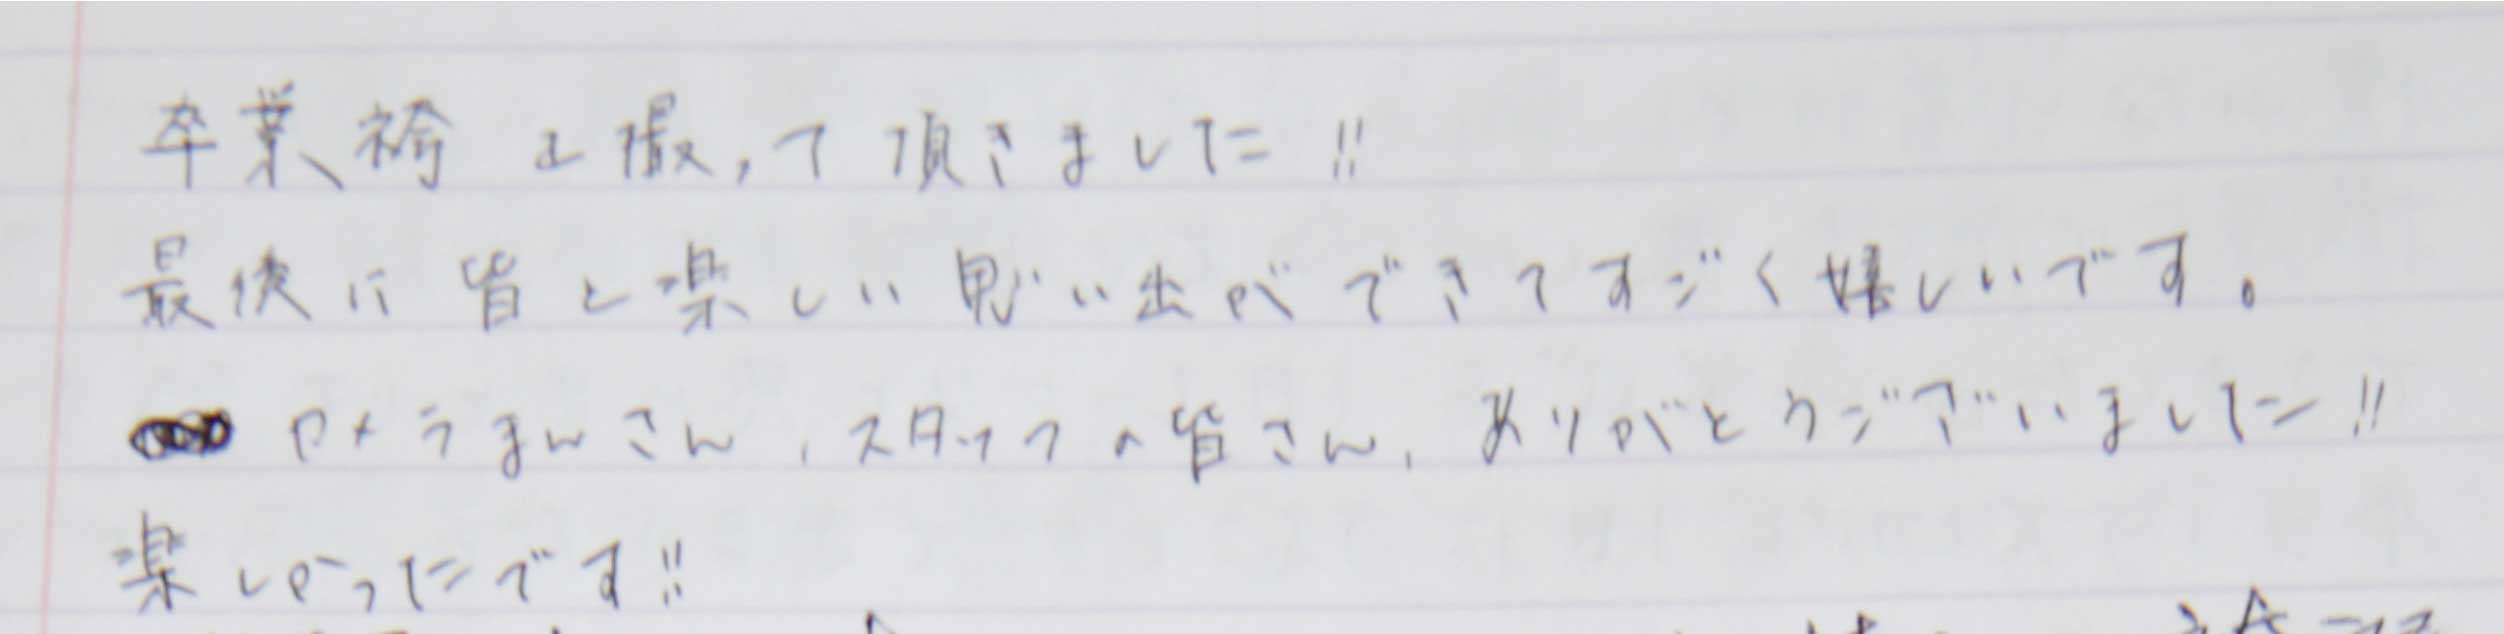 卒業袴を撮って頂きました!!
最後に皆と楽しい思い出ができてすごく嬉しいです。
カメラまんさん、スタッフの皆さん、ありがとうございました!!
楽しかったです!!